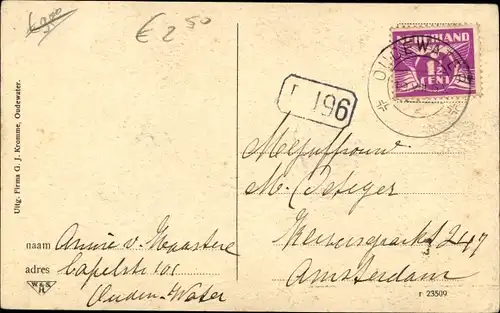 € 2 50
NEDERLAND
1½
CENT
OUDEWATER
196
Mejuffrouw
M.
247
Amsterdam
naam Annie v.
adres Capelstr 101
Ouden-Water
Uitg. Firma G. J. Kromme, Oudewater.
W & S
r 23509